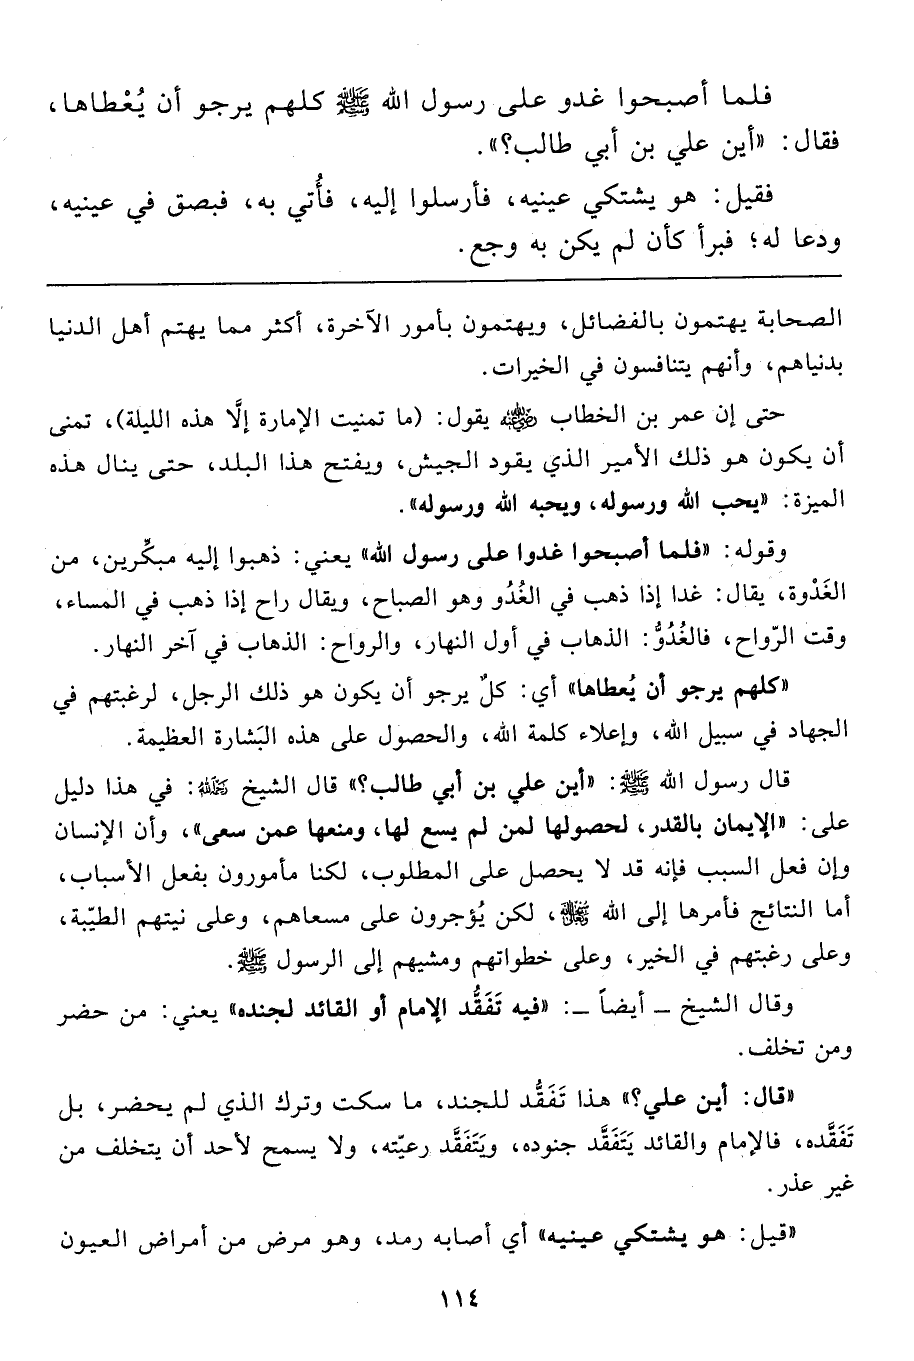 فلما أصبحوا غدو على رسول الله ﷺ كلهم يرجو أن يُعْطاها،
فقال: «أين علي بن أبي طالب؟».
فقيل: هو يشتكي عينيه، فأرسلوا إليه، فأُتي به، فبصق في عينيه،
ودعا له؛ فبرأ كأن لم يكن به وجع.
الصحابة يهتمون بالفضائل، ويهتمون بأمور الآخرة، أكثر مما يهتم أهل الدنيا
بدنياهم، وأنهم يتنافسون في الخيرات.
حتى إن عمر بن الخطاب رضي الله عنه يقول: (ما تمنيت الإمارة إلَّا هذه الليلة)، تمنى
أن يكون هو ذلك الأمير الذي يقود الجيش، ويفتح هذا البلد، حتى ينال هذه
الميزة: «يحب الله ورسوله، ويحبه الله ورسوله».
وقوله: «فلما أصبحوا غدوا على رسول الله» يعني: ذهبوا إليه مبكِّرين، من
الغَدْوة، يقال: غدا إذا ذهب في الغُدُو وهو الصباح، ويقال راح إذا ذهب في المساء،
وقت الرّواح، فالغُدُوُّ: الذهاب في أول النهار، والرواح: الذهاب في آخر النهار.
«كلهم يرجو أن يُعطاها» أي: كلٌ يرجو أن يكون هو ذلك الرجل، لرغبتهم في
الجهاد في سبيل الله، وإعلاء كلمة الله، والحصول على هذه البَشارة العظيمة.
قال رسول الله ﷺ: «أين علي بن أبي طالب؟» قال الشيخ رحمه الله: في هذا دليل
على: «الإيمان بالقدر، لحصولها لمن لم يسع لها، ومنعها عمن سعى»، وأن الإنسان
وإن فعل السبب فإنه قد لا يحصل على المطلوب، لكنا مأمورون بفعل الأسباب،
أما النتائج فأمرها إلى الله ﷻ، لكن يُؤجرون على مسعاهم، وعلى نيتهم الطيّبة،
وعلى رغبتهم في الخير، وعلى خطواتهم ومشيهم إلى الرسول ﷺ.
وقال الشيخ ـ أيضاً ـ: «فيه تَفَقُّد الإمام أو القائد لجنده» يعني: من حضر
ومن تخلف.
«قال: أين علي؟» هذا تَفَقُّد للجند، ما سكت وترك الذي لم يحضر، بل
تَفَقَّده، فالإمام والقائد يَتَفَقَّد جنوده، ويَتَفَقَّد رعيّته، ولا يسمح لأحد أن يتخلف من
غير عذر.
«قيل: هو يشتكي عينيه» أي أصابه رمد، وهو مرض من أمراض العيون
١١٤